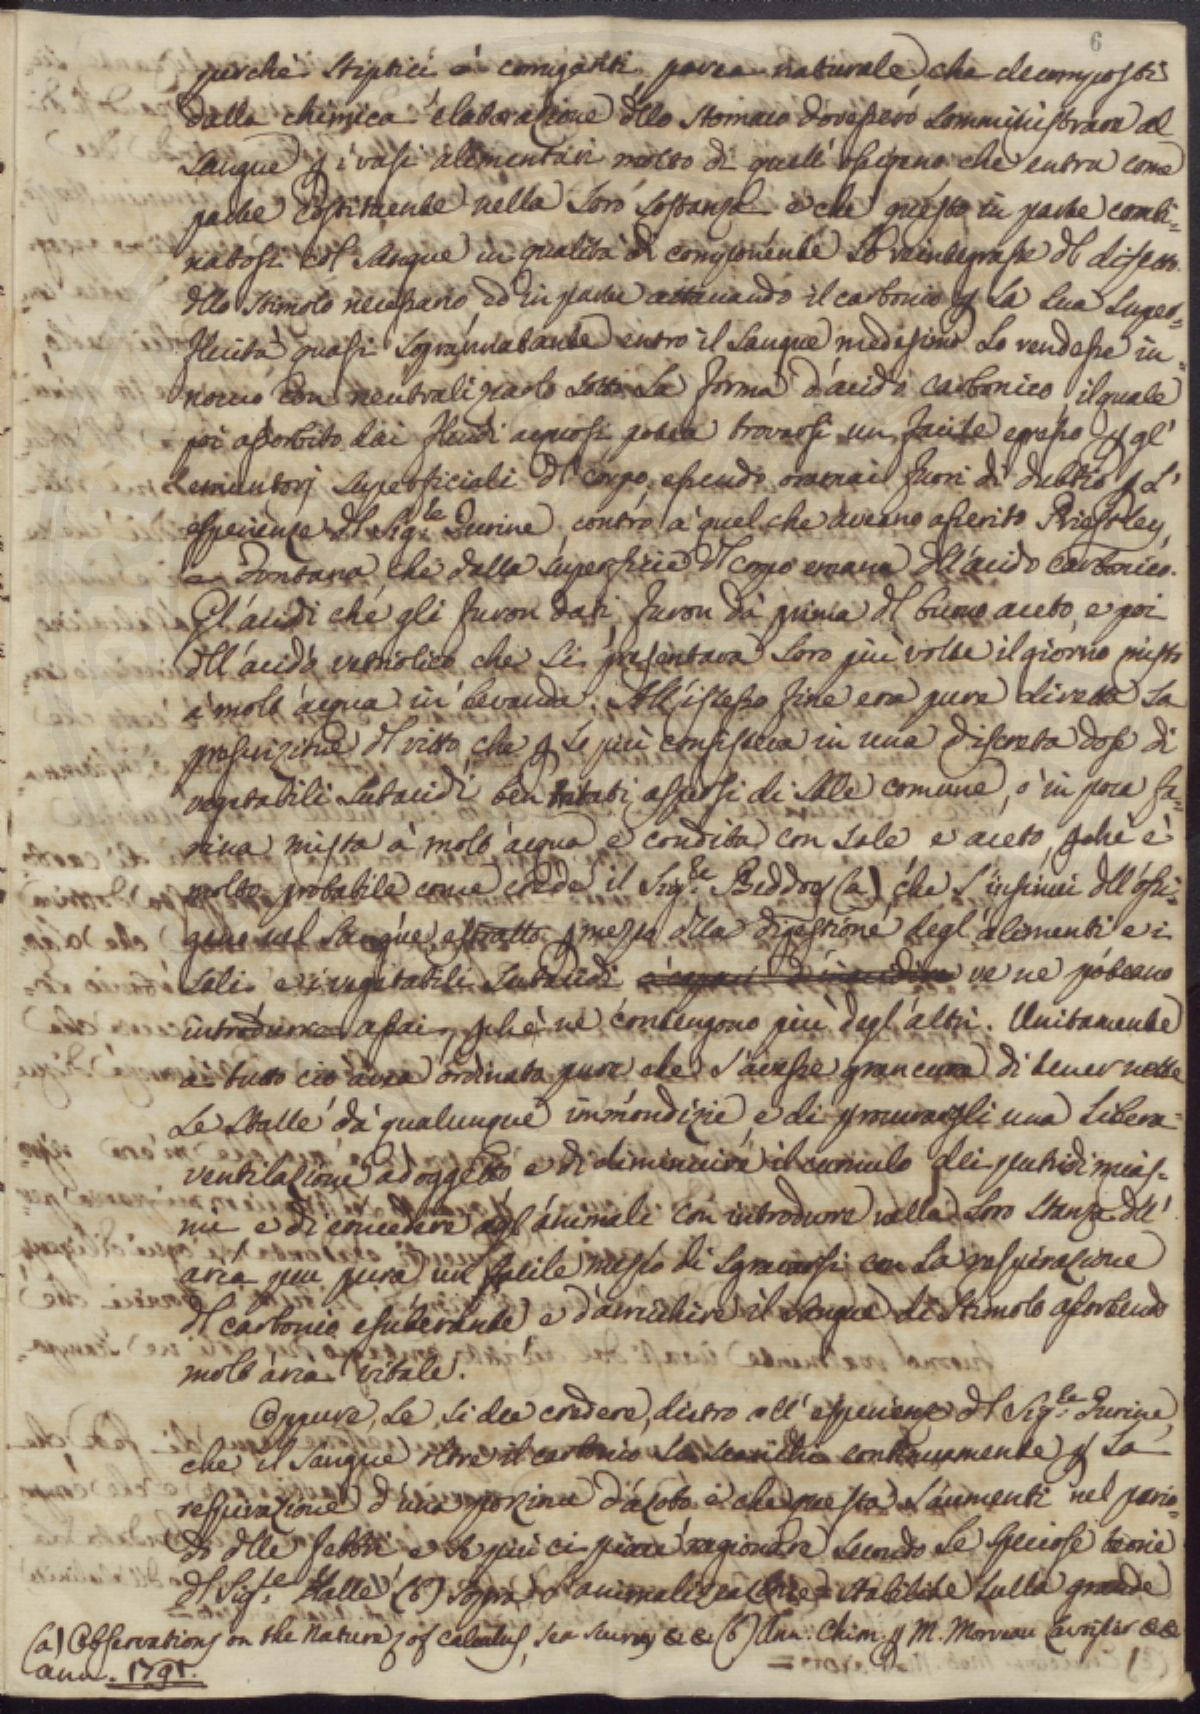 6
perchè stiptici è corrigenti parea naturale che decomposti
dalla chimica elaborazione dllo stomaco dovessero somministrare al
sangue p i vasi alimentari molto di quell'ossigeno che entra come
parte costituente nella loro sostanza e che questo in parte combi-
natosi col sangue in qualità di componente lo reintegrasse dl difetto
dllo stimolo necessario, ed in parte attenuando il carbonio p la sua super-
fluità quasi sogrannatante entro il sangue medesimo lo rendesse in-
nocuo con neutralizzarlo sotto la forma d'acido carbonico il quale
poi assorbito dai fluidi acquosi potea trovarsi un facile egresso p gl'
emuntorj superficiali dl corpo, essendo oramai fuori di dubbio p l'
esperienze dl Sig.le Jurine, contro a quel che aveano asserito Priestley,
e Fontana che dalla superficie dl corpo emana dll'acido carbonico.
Gl'acidi che gli furon dati, furon dà prima dl buono aceto, e poi
dll'acido vetriolico che si presentava loro più volte il giorno misto
a molt'acqua in bevanda. All'istesso fine era pure diretta la
prescrizione dl vitto, che p le più consisteva in una discreta dose di
vegetabili subacidi ben tritati aspersi di sale comune, o in poca fa-
rina mista à molt'acqua e condita con sale e aceto, pchè è
molto probabile come crede il Sig.le Beddoes (a) che s'insinui dll'ossi-
geno nel sangue estratto p mezzo dlla digestione degl'alimenti e i
sali e i vegetabili subacidi ve ne poteano
introdurre assai, pchè ne contengono più degl'altri. Unitamente
a tutto ciò avea ordinato pure che s'avesse gran cura di tener nette
le stalle dà qualunque immondizie, e di procurargli una libera
ventilazione adoggetto e di diminuire il cumulo dei putridi mias-
mi e di concedere agl'animali con introdurre nella loro stanza dll'
aria piu pura un facile mezzo di sgravarsi con la respirazione
dl carbonio esuberante, e d'arricchire il sangue di stimolo assorbendo
molt'aria vitale.
Oppure, se si dee credere, dietro all'esperienze dl Sig.le Jurine,
che il sangue oltre il carbonio si scarichi continuamente p la
respirazione d'una porzione d'azoto e che questa s'aumenti nel perio-
do dlle febbri, e se più ci piace ragionare secondo le speciose teorie
dl Sig.le Hallé (b) sopra l'animalizzazione stabilite sulla grande
(a) Observations on the nature of calculus, sea scurvy &c &c (b) Ann: Chim. p M. Morveau Lavoisier &c &c
ann. 1791.